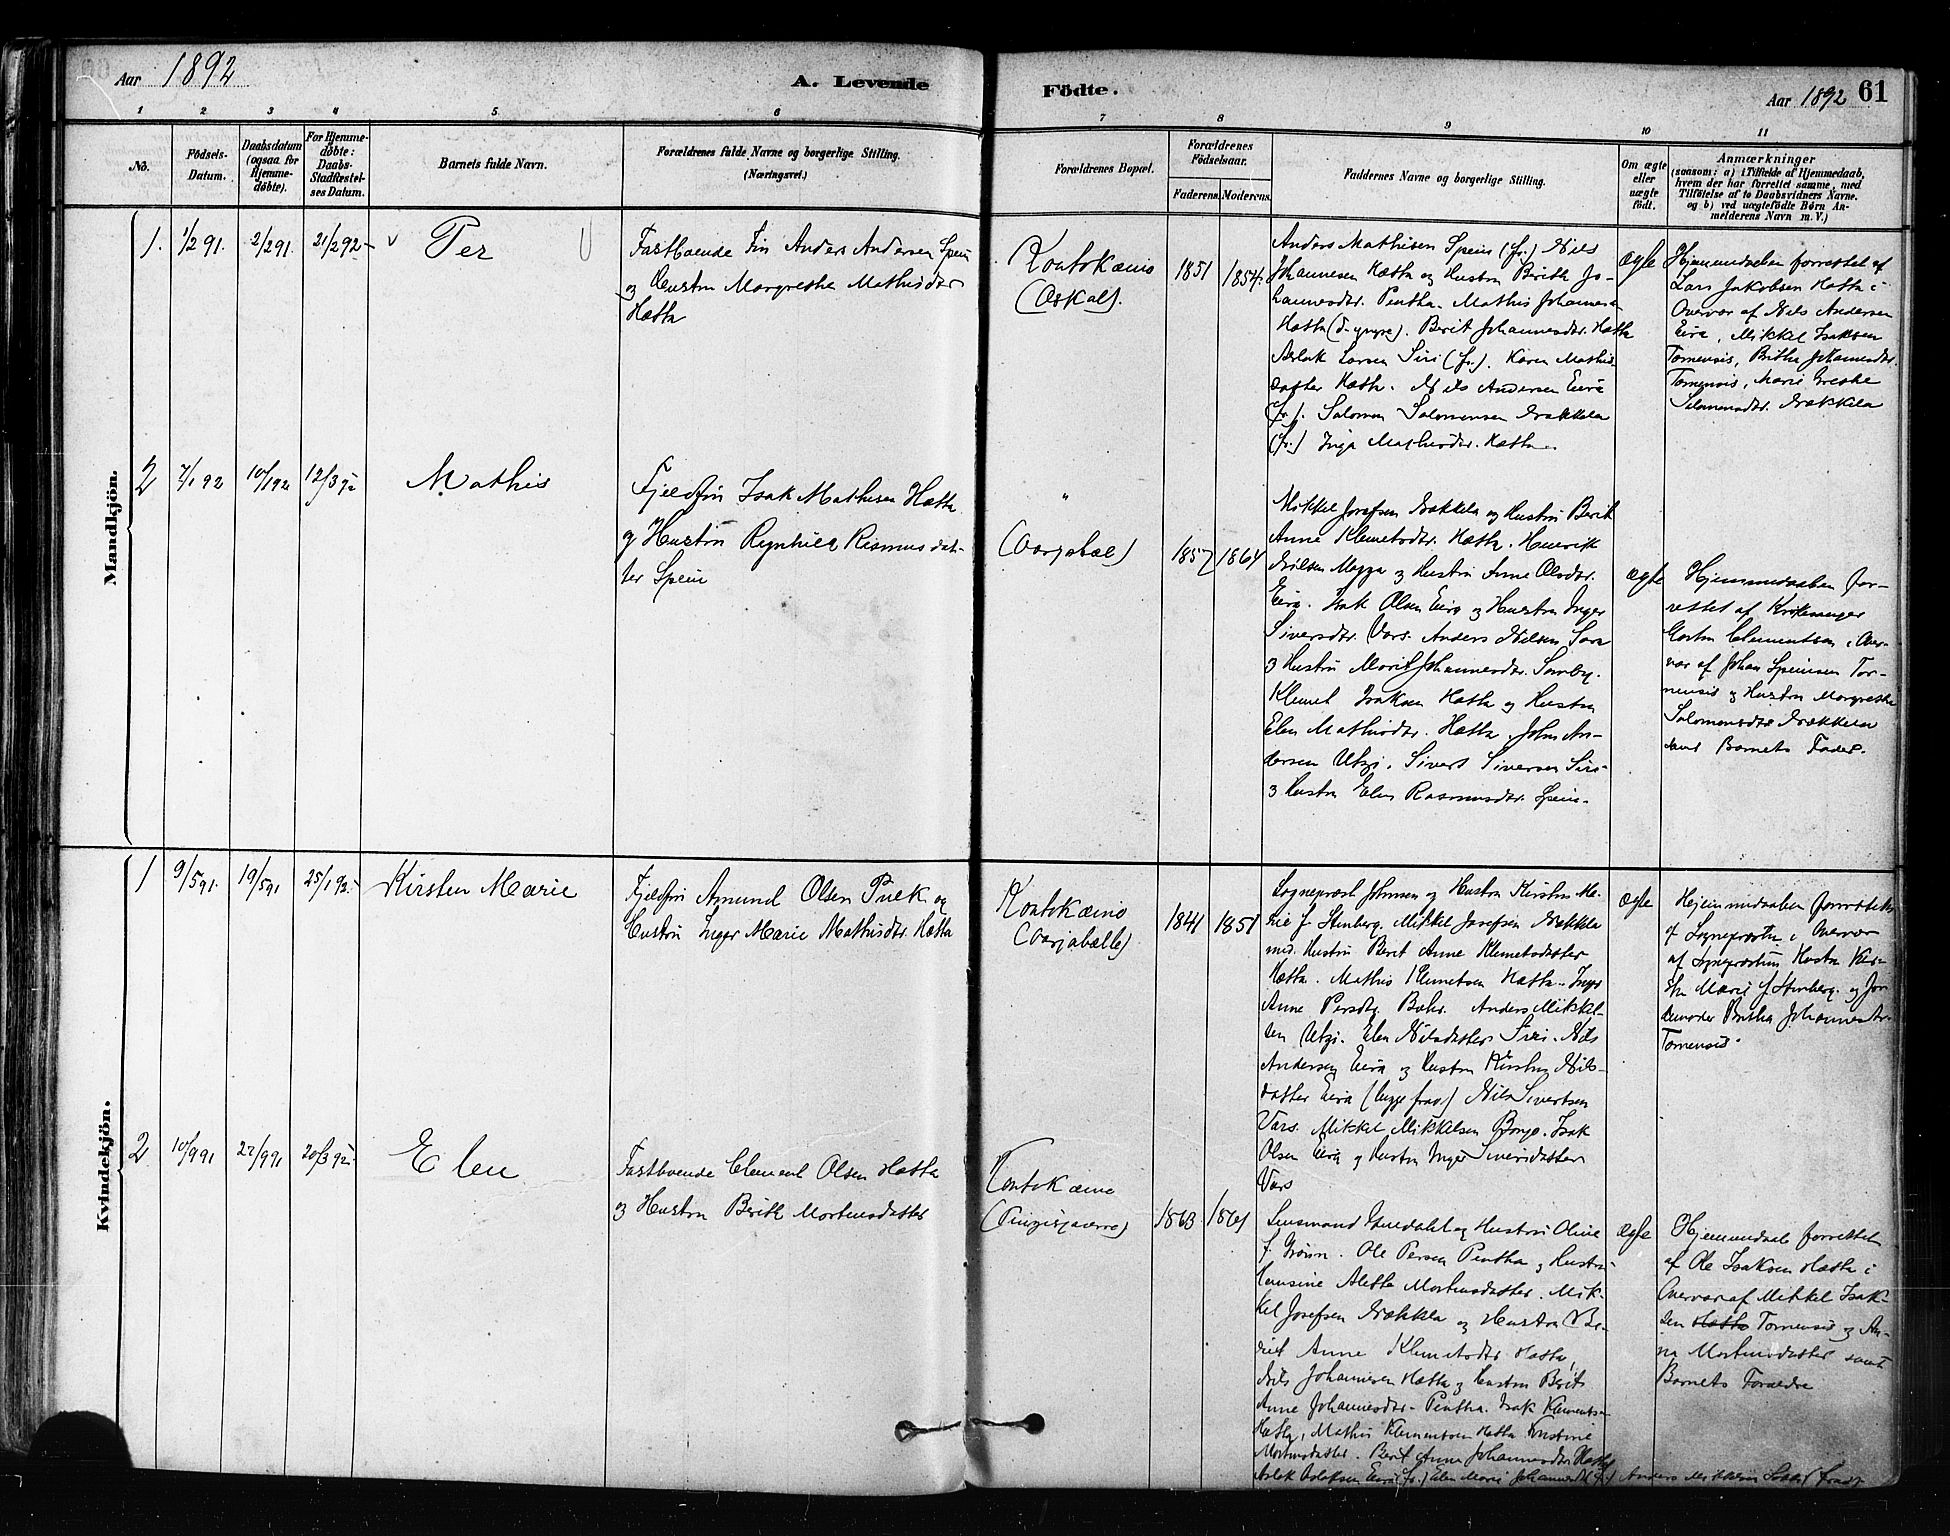 Aar 1892
A. Levende
Födte.
Aar 1892
61
1
2
3
4
5.
6
7
8
9
10
11
No.
Födsels-
Datum.
Daabsdatum
(ogsaa for
Hjemme-
döbte).
For Hjemme-
döbte:
Daabs-
Stadfæstel-
ses Datum.
Barnets fulde Navn.
Forældrenes fulde Navne og borgerlige Stilling.
(Næringsvei.)
Forældrenes Bopæl.
Forældrenes
Födselsaar.
Faderens.
Moderens.
Faddernes Navne og borgerlige Stilling.
Om ægte
eller
uægte
födt.
Anmærkninger
(saasom: a) i Tilfælde af Hjemmedaab,
hvem der har forrettet samme, med
Tilföielse af to Daabsvidners Navne.
og b) ved uægtefödte Börn An-
melderens Navn m. V.)
Mandkjön.
1.
1/2 91.
2/2 91.
21/2 92
Per
Fastboende Fin Anders Andersen Spein
og Hustru Margrethe Mathisdtr
Hætta
Koutokæino
(Askal).
1851
1854
Anders Mathisen Spein (fr.) Nils
Johannesen Hætta og Hustru Berith Jo-
hannesdtr. Pentha. Mathis Johannesen
Hætta (d. yngre). Berit Johannesdtr. Hætta
Aslak Larsen Siri (fr.). Karen Mathis
datter Hætta. Nils Andersen Eira
(fr.). Salomon Salomonsen Nækkela
(fr.) Inga Mathisdtr. Hætta
ægte
Hjemmedaaben forrettet af
Lars Jakobsen Hætta i
Overvær af Nils Andersen
Eira, Mikkel Isaksen
Tornensis, Britha Johannesdtr.
Tornensis, Marie Grethe
Salomonsdtr. Nækkela
2
7/1 92
10/1 92
12/3 92
Mathis
Fjeldfin Isak Mathisen Hætta
og Hustru Regnhild Rasmusdat-
ter Spein
"
(Oarjabæl)
1857
1864
Mikkel Josefsen Nækkela og Hustru Berit
Anne Klemetsdtr. Hætta. Henrik
Nilsen Magga og Hustru Anne Olsdtr.
Eira. Isak Olsen Eira og Hustru Inger
Siversdtr. Vars. Anders Nilsen Sara
og Hustru Marit Johannesdtr. Somby.
Klemet Isaksen Hætta og Hustru
Elen Mathisdtr. Hætta. John An-
dersen Utsi. Sivert Siversen Siri
og Hustru Elen Rasmusdtr. Spein.
ægte
Hjemmedaaben for-
rettet af Kirkesanger
Clementsen i Over-
vær af Johan Speinsen Tor-
nensis og Hustru Margrethe
Salomonsdtr Nækkela
samt Barnets Fader.
Kvindekjön.
1
9/5 91.
19/5 91
25/1 92.
Kirsten Marie
Fjeldfin Amund Olsen Pulk og
Hustru Inger Marie Mathisdtr. Hætta
Koutokæino
(Oarjabælle)
1841
1851
Sogneprest Johnsen og Hustru Kirsten Ma-
rie f. Stenberg. Mikkel Josefsen Nækkela
med Hustru Berit Anne Klemetsdatter
Hætta. Mathis Klemetsen Hætta. Inger
Anne Persdtr. Bæhr. Anders Mikkel-
sen Utsi. Elen Nilsdatter Siri. Nils
Andersen Eira og Hustru Kirsten Nils-
datter Eira (begge frav.) Nils Sivertsen
Vars. Mikkel Mikkelsen Bongo. Isak
Olsen Eira og Hustru Inger Siversdatter
Vars
ægte
Hjemmedaaben forrettet
af Sognepresten i Overvær
af Sogneprestens Hustru Kir-
sten Marie f. Stenberg og Jor-
demoder Britha Johannesdtr.
Tornensis.
2
10/9 91
27/9 91
20/3 92
Elen
Fastboende Clement Olsen Hætta
og Hustru Berith Mortensdatter
Koutokæino
(Pingisjaverre)
1863
1861
Lensmand og Hustru Oline
f. Ole Persen Pentha og Hustru
Hansine Alette Mortensdatter. Mik-
kel Josefsen Nækkela og Hustru Be-
rit Anne Klemetsdtr Hætta,
Nils Johannesen Hætta og Hustru Berit
Anne Johannesdtr. Pentha. Isak Klemetsen
Hætta, Mathis Klementsen Hætta Kristine
Mortensdatter. Berit Anna Johannesdtr Hætta
Aslak Aslaksen Eira (fr.) Elen Marie Johannesdtr (fr.) Anders Mikkelsen (frav)
ægte
Hjemmedaab forrettet
af Ole Isaksen Hætta i
Overvær af Mikkel Isak-
sen Hætta Tornensis og An-
na Mortensdatter samt
Barnets Forældre